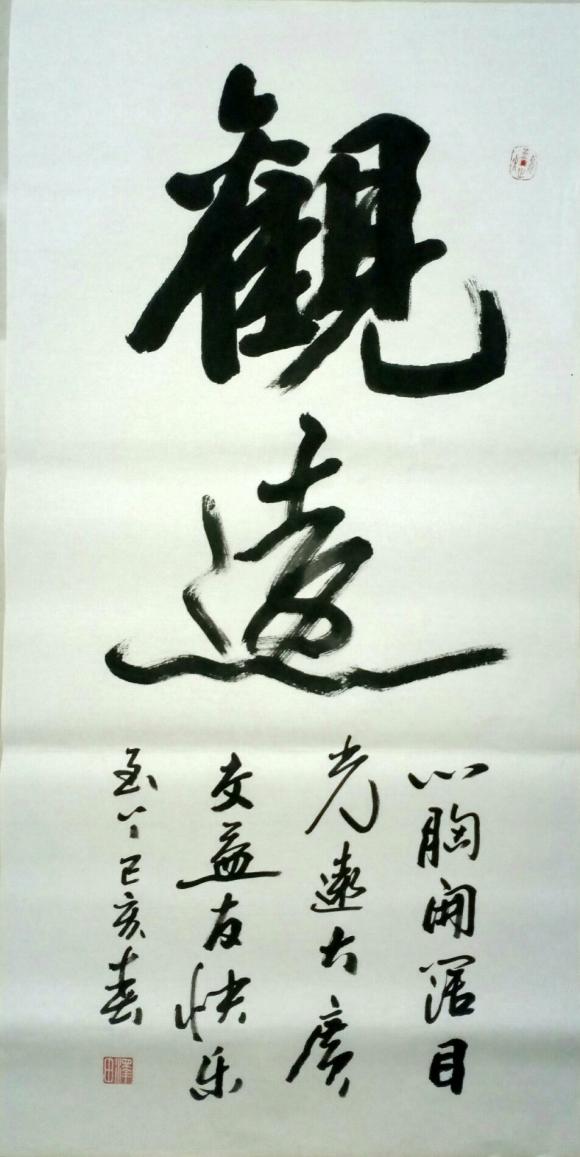 觀
遠
心胸開阔目
光遠大廣
交益友快乐
至丫己亥春